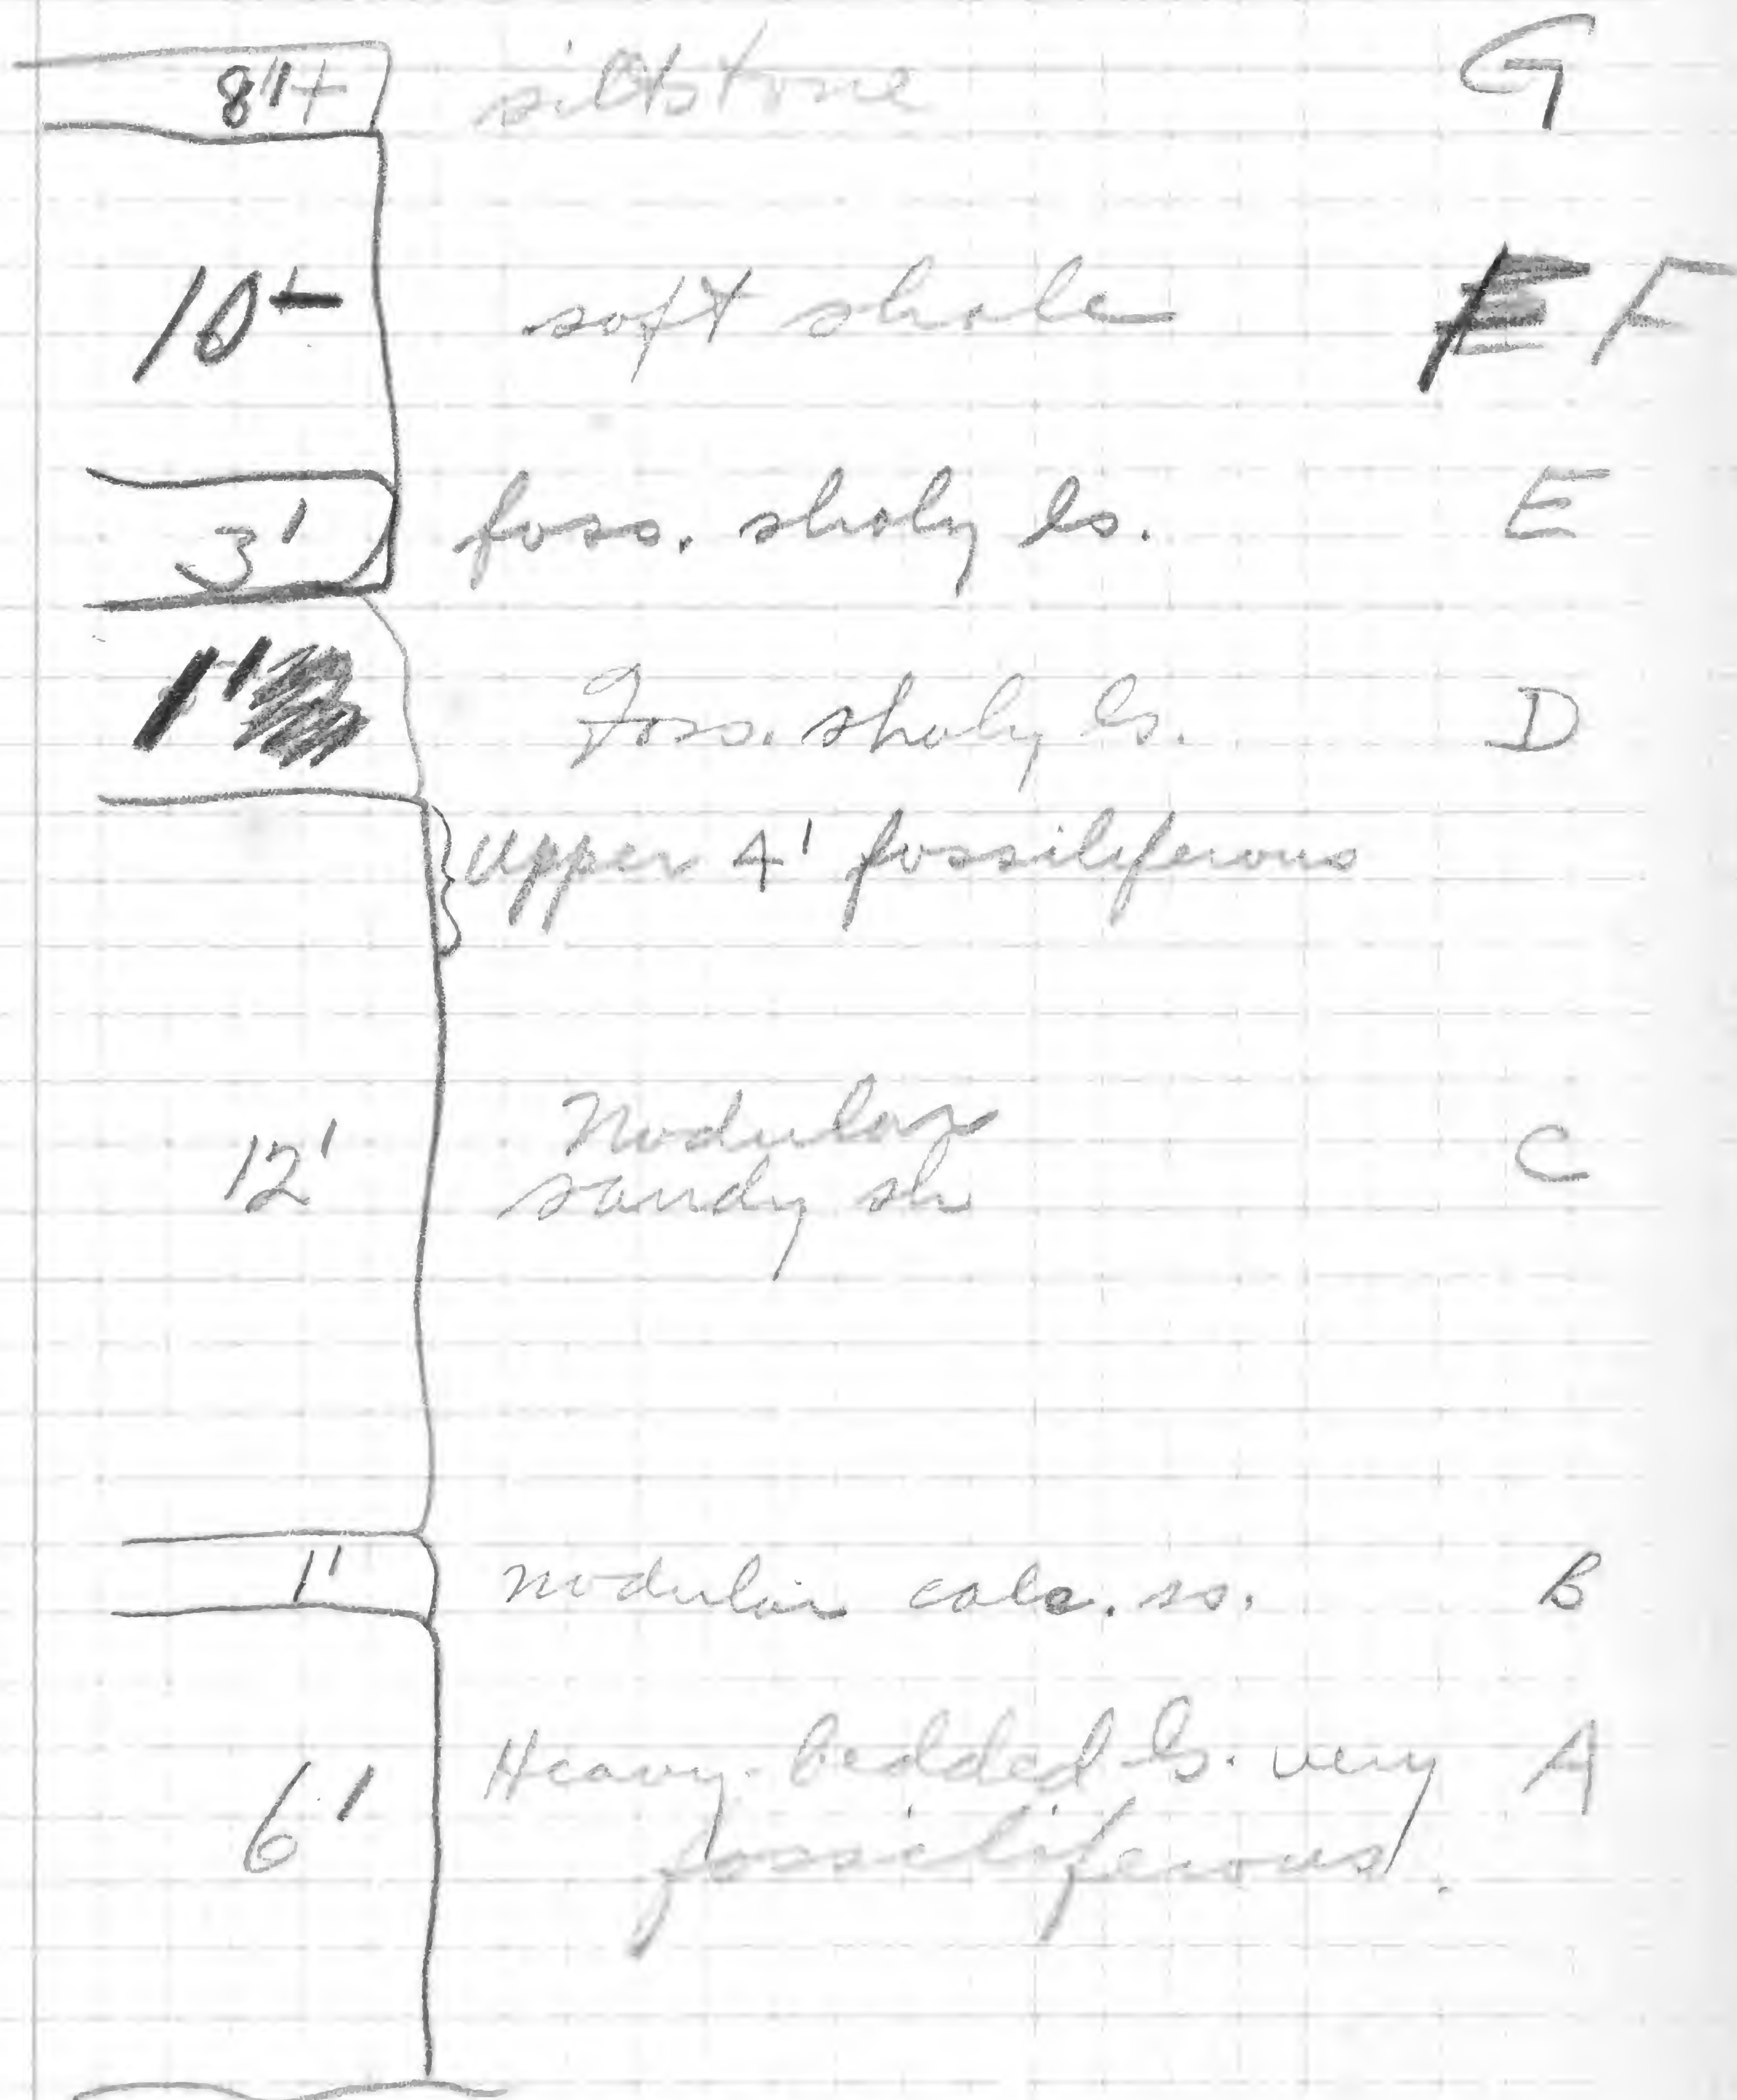 8"+ siltstone G
10± soft shale F
3' foss. shaly ls. E
1' Foss. shaly ls. D
Upper 4' fossiliferous
12' Nodular C
sandy sh
1' nodular calc. ss. B
6' Heavy-bedded ls. very A
fossiliferous.